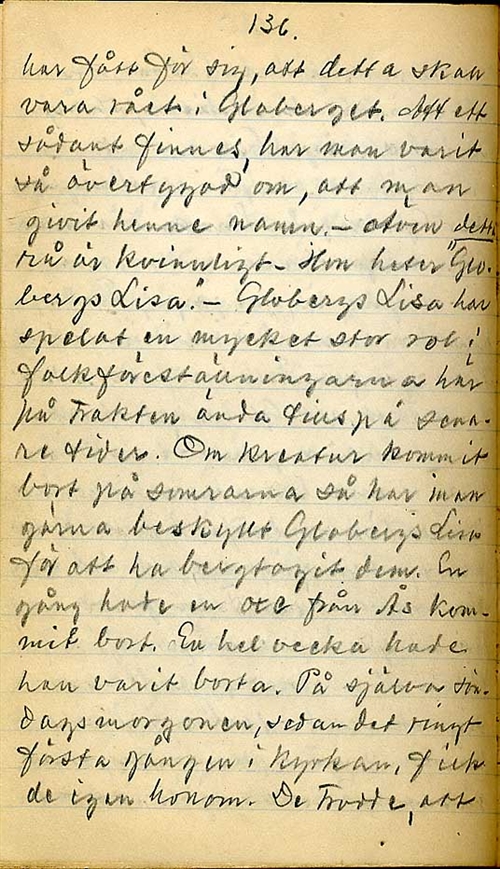 136.
har fått för sig, att detta skall
vara rået i Globerget. Att ett
sådant finnes, har man varit
så övertygad om, att man
givit henne namn. – även detta
rå är kvinnligt – Hon heter "Glo-
bergs Lisa". – Globergs Lisa har
spelat en mycket stor rol i
folkföreställningarna här
på trakten ända tills på sena-
re tider. Om kreatur kommit
bort på somrarna så har man
gärna beskyllt Globergs Lisa
för att ha bergtagit dem. En
gång hade en oxe från Ås kom-
mit bort. En hel vecka hade
han varit borta. På själva sön-
dagsmorgonen, sedan det ringt
första gången i kyrkan, fick
de igen honom. De trodde, att